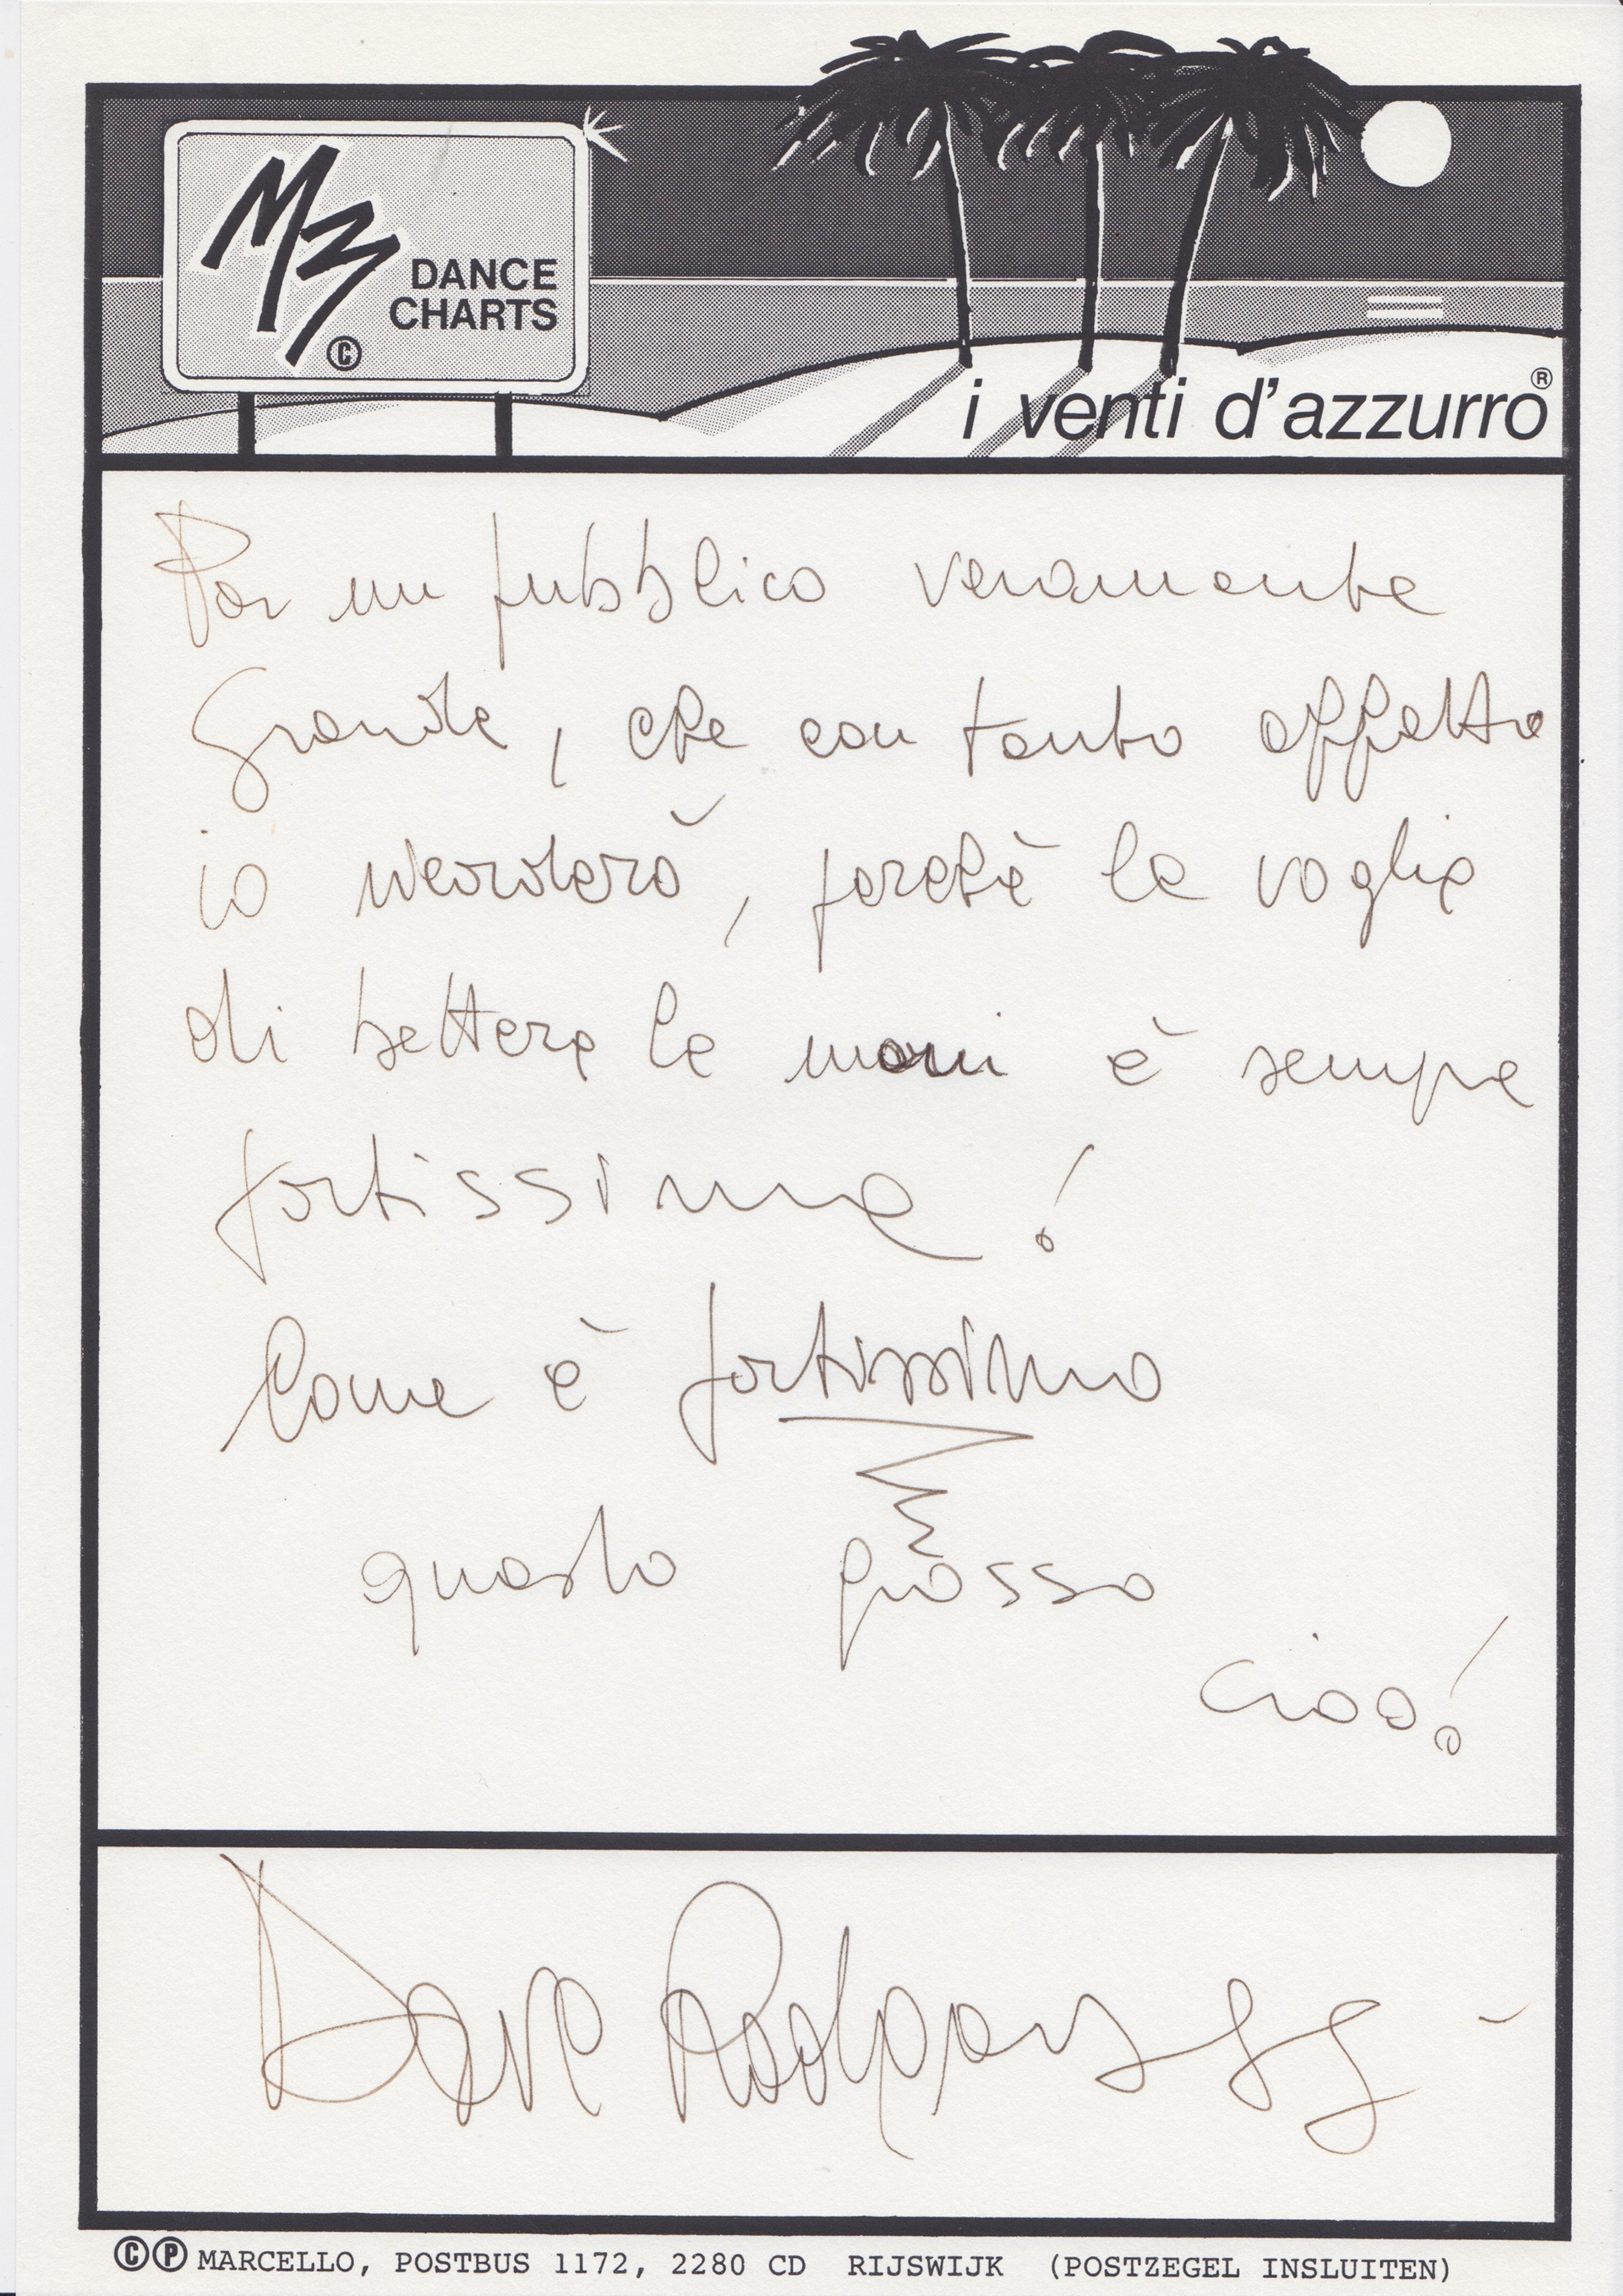 M3
DANCE
CHARTS
©
i venti d'azzurro®
Per un pubblico veramente
Grande, che con tanto affetto
io ricorderò, perchè la voglia
di battere le mani è sempre
fortissima!
Come è fortissimo
questo
ciao!
Dave Rodgers
©Ⓟ MARCELLO, POSTBUS 1172, 2280 CD RIJSWIJK (POSTZEGEL INSLUITEN)